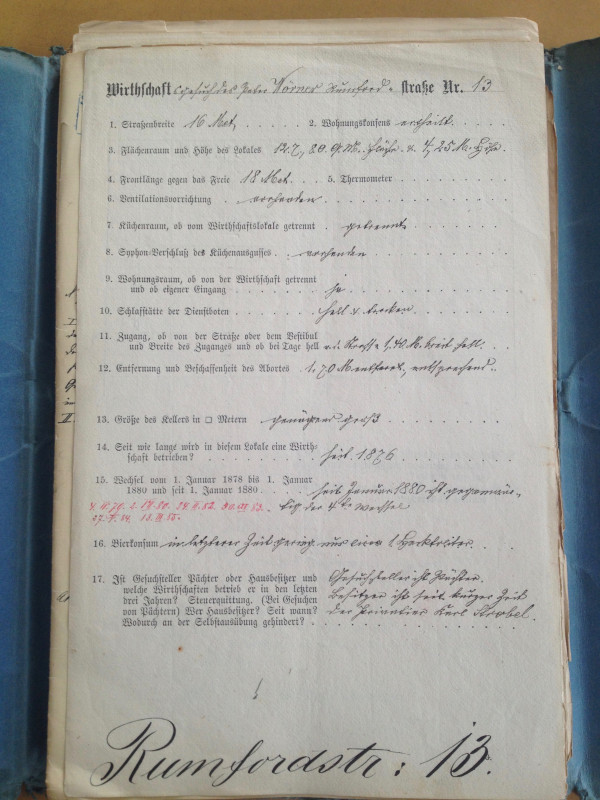 Wirthschaft sgesuch des Peter Körner Rumford-straße Nr. 13
1. Straßenbreite 16 Met. 2. Wohnungskonsens ertheilt.
3. Flächenraum und Höhe des Lokales Fläche & 4,25 M. Höhe.
4. Frontlänge gegen das Freie 18 Met. 5. Thermometer
6. Ventilationsvorrichtung vorhanden
7. Küchenraum, ob vom Wirthschaftslokale getrennt getrennt
8. Syphon-Verschluß des Küchenausgusses vorhanden
9. Wohnungsraum, ob von der Wirthschaft getrennt
und ob eigener Eingang ja
10. Schlafstätte der Dienstboten hell & trocken
11. Zugang, ob von der Straße oder dem Vestibul
und Breite des Zuganges und ob bei Tage hell v. d. Strasse 1,40 M. breit hell.
12. Entfernung und Beschaffenheit des Abortes 1,70 M entfernt, entsprechend.
13. Größe des Kellers in □ Metern genügend groß
14. Seit wie lange wird in diesem Lokale eine Wirth-
schaft betrieben? seit 1876
15. Wechsel vom 1. Januar 1878 bis 1. Januar
1880 und seit 1. Januar 1880 seit Januar 1880 ist gegenwär-
tig der 4te Wechsel
16. Bierkonsum in letzterer Zeit gering nur circa 1 Hectoliter.
17. Ist Gesuchsteller Pächter oder Hausbesitzer und Gesuchsteller ist Pächter.
welche Wirthschaften betrieb er in den letzten Besitzer ist seit kurzer Zeit
drei Jahren? Steuerquittung. (Bei Gesuchen der Privatier Karl Strobel.
von Pächtern) Wer Hausbesitzer? Seit wann?
Wodurch an der Selbstausübung gehindert?
Rumfordstr: 13.